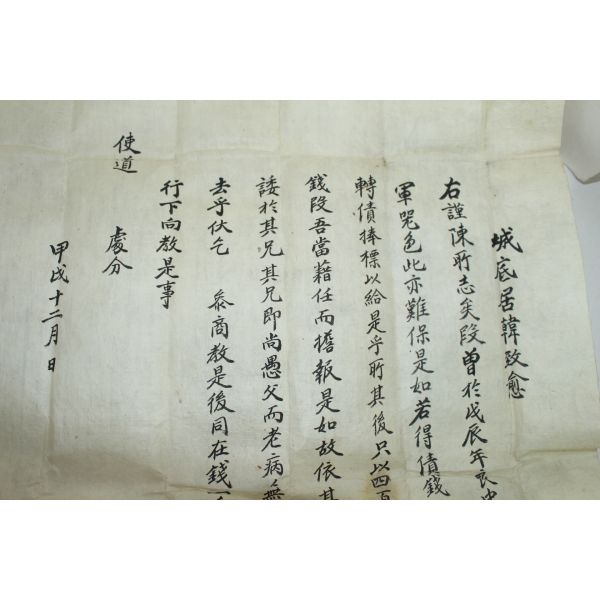 城底居韓致愈
右謹陳所志矣段曽於戊辰年
軍器色此亦難保是如若得債錢
轉債捧標以給是乎所其後只以四百
錢段吾當藉任而擔報是如故依其
諉於其兄其兄即尚愚父而老病無
去乎伏乞 叅商教是後同在錢
行下向教是事
使道 處分
甲戌十二月 日